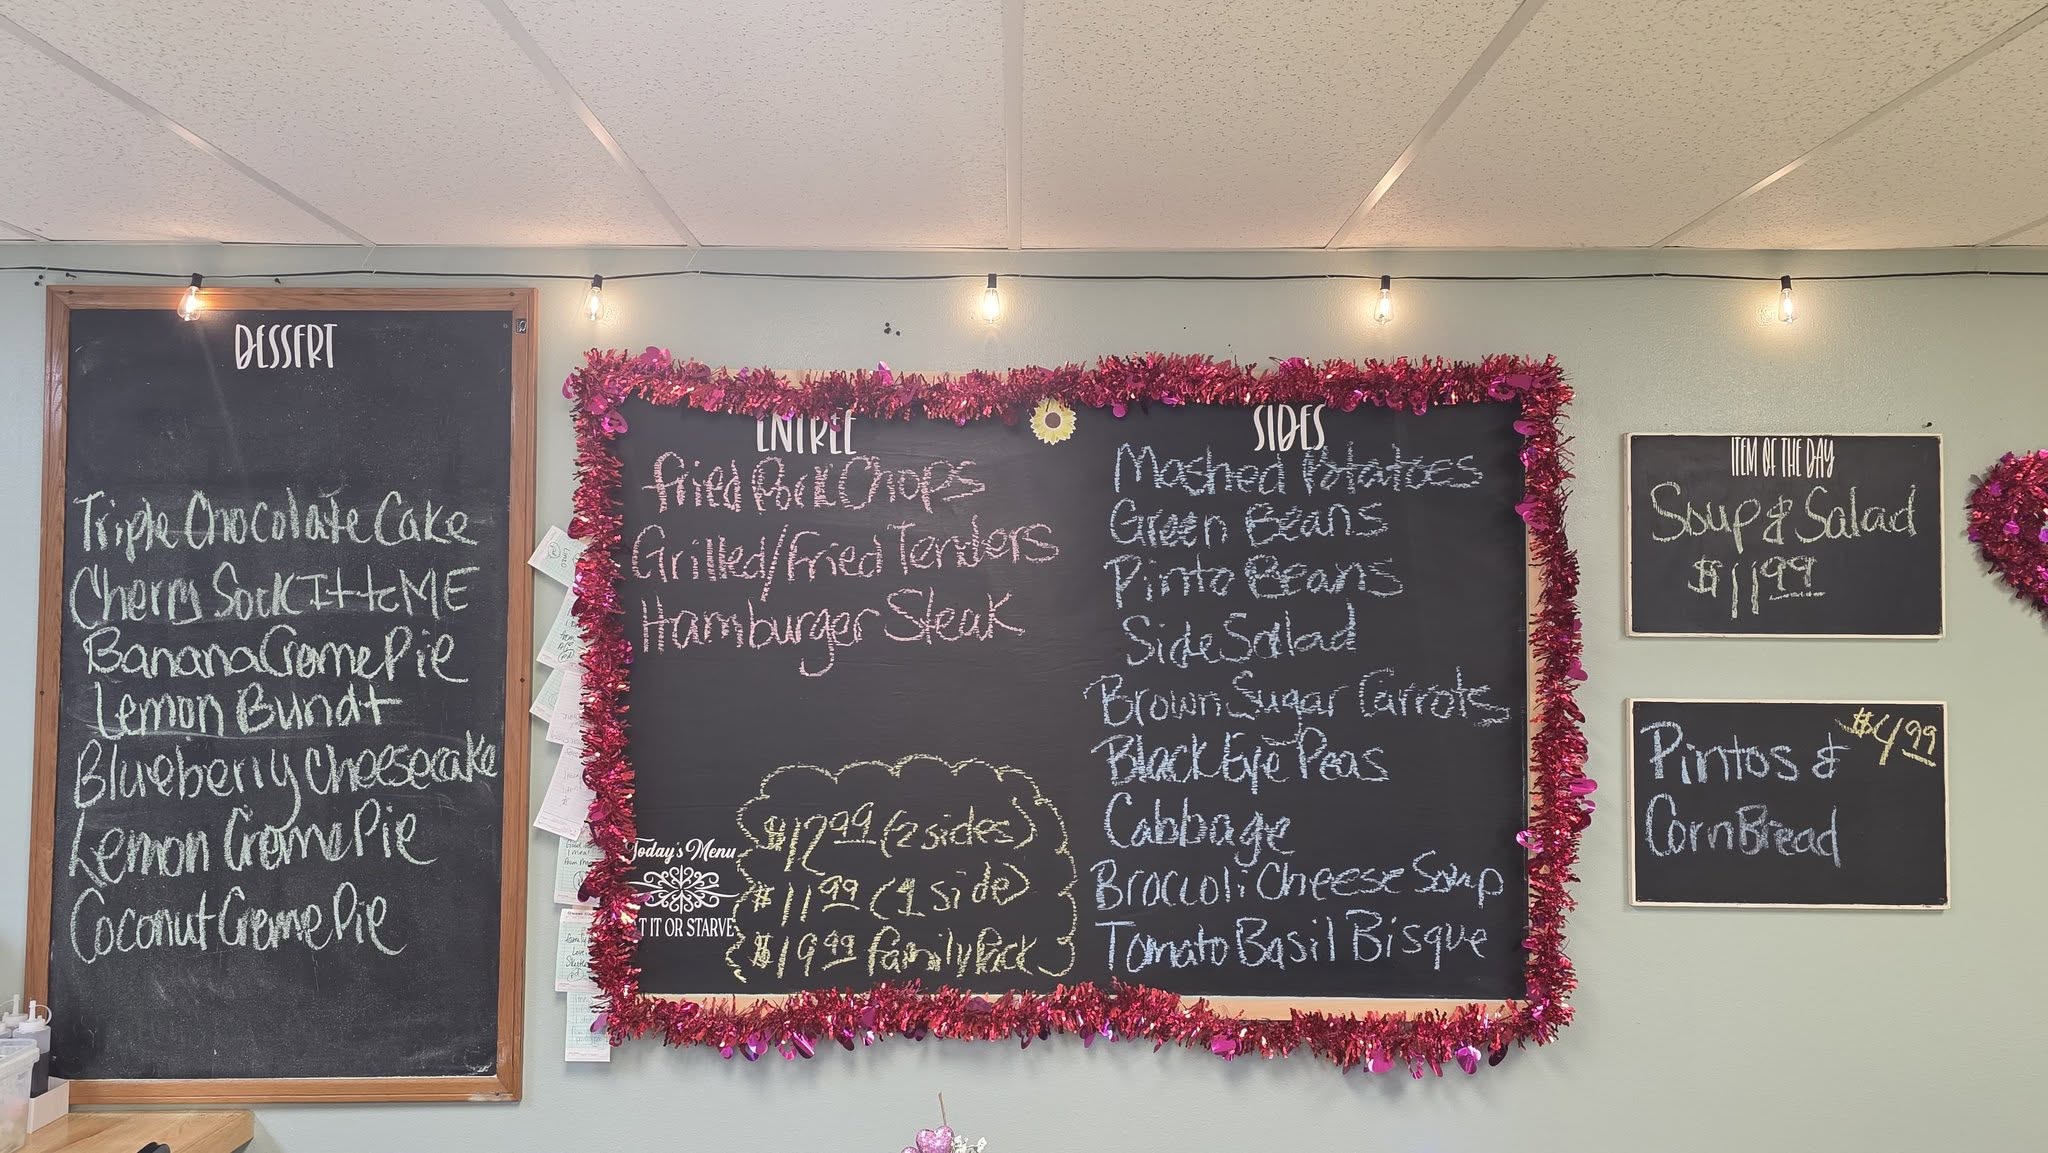 DESSERT
Triple Chocolate Cake
Cherry Sock It to ME
Banana Creme Pie
Lemon Bundt
Blueberry Cheesecake
Lemon Creme Pie
Coconut Creme Pie
ENTREE
Fried Pork Chops
Grilled/Fried Tenders
Hamburger Steak
$12.99 (2 sides)
$11.99 (1 side)
$19.99 Family Pack
Today's Menu
IT OR STARVE
SIDES
Mashed Potatoes
Green Beans
Pinto Beans
Side Salad
Brown Sugar Carrots
Black Eye Peas
Cabbage
Broccoli Cheese Soup
Tomato Basil Bisque
ITEM OF THE DAY
Soup & Salad
$11.99
Pintos & $4.99
Corn Bread